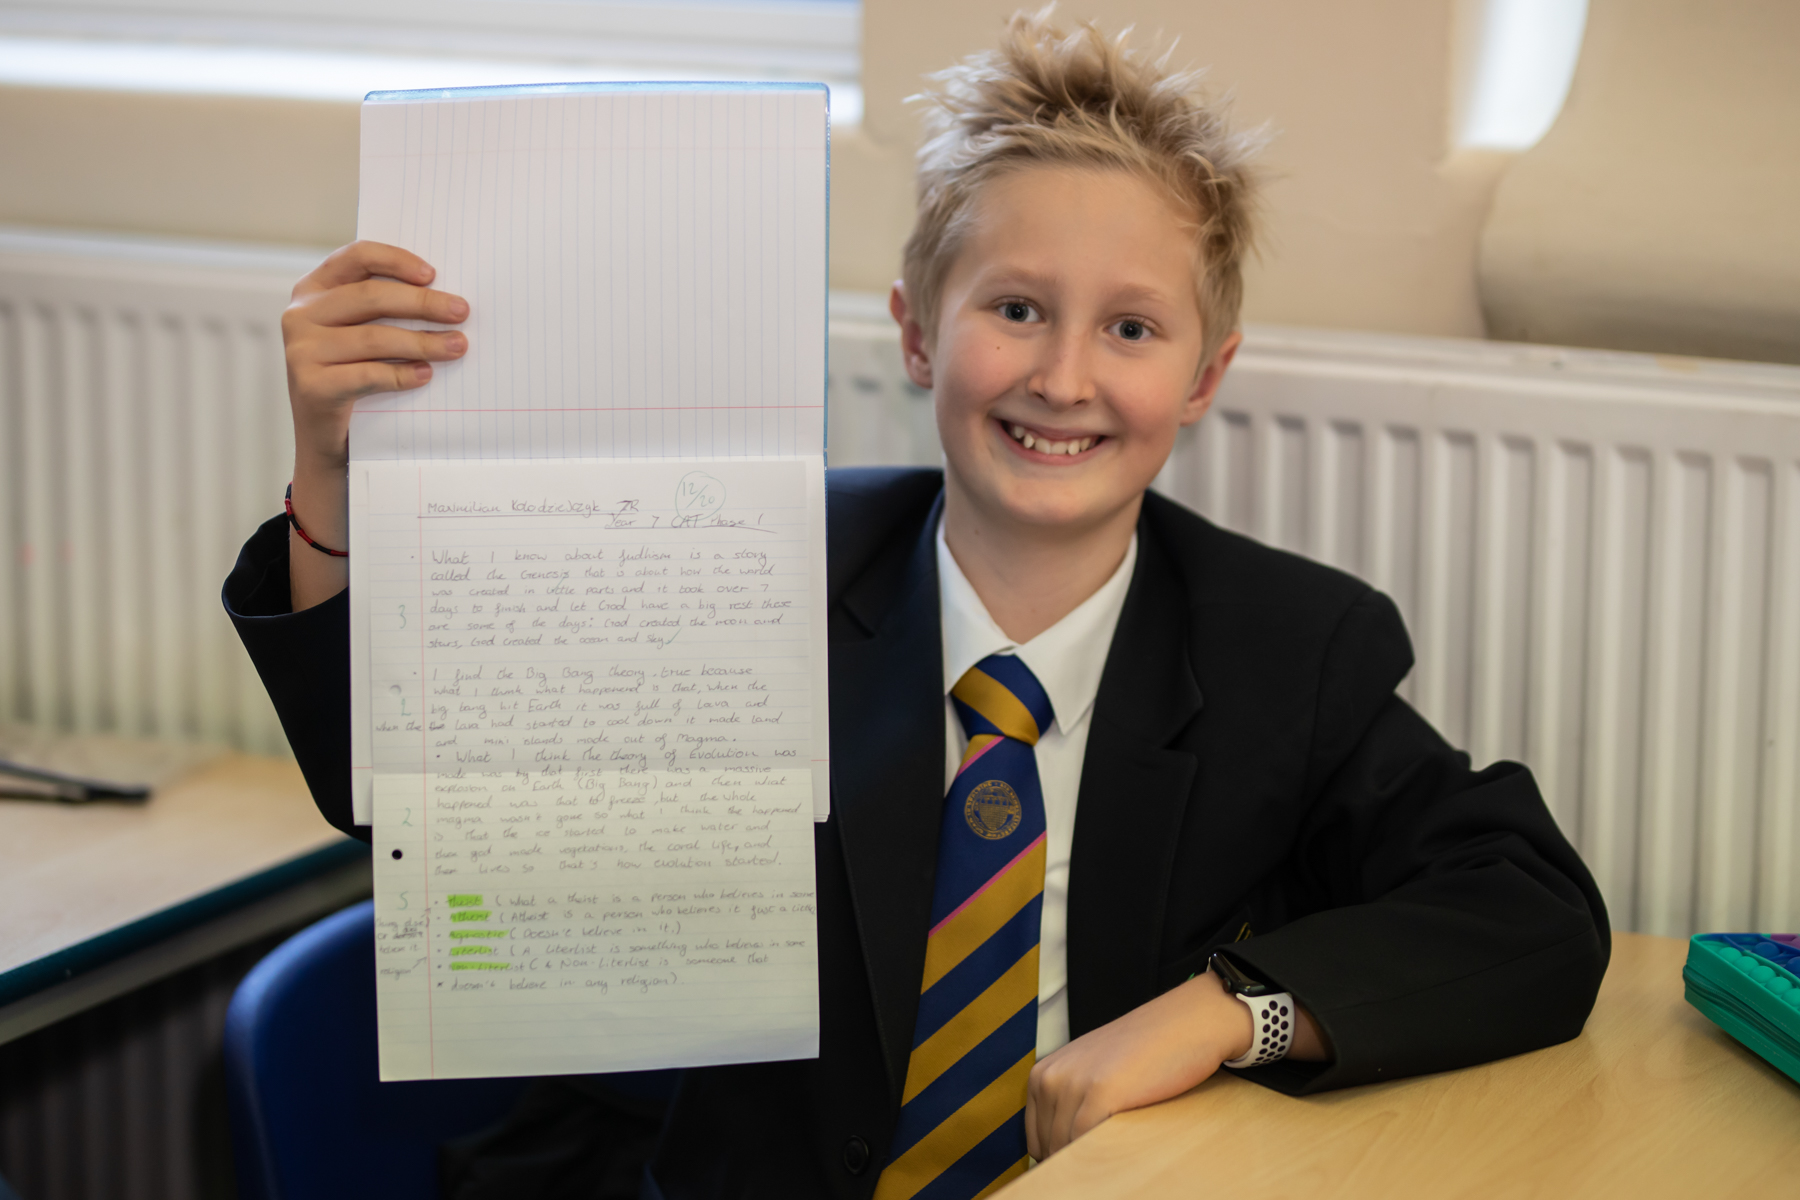 12/20
Maxmilian Kolodziejczyk 7R
Year 7 CAT Phase 1
• What I know about Judhism is a story
called the Genesis that is about how the world
was created in little parts and it took over 7
3 days to finish and let God have a big rest these
are some of the days: God created the moon and
stars, God created the ocean and sky
• I find the Big Bang theory true because
what I think what happened is that, when the
1 big bang hit Earth it was full of Lava and
when the lava had started to cool down it made land
and mini islands made out of Magma.
• What I think the theory of Evolution was
made was by that first there was a massive
explosion on Earth (Big Bang) and then what
happened was that to freeze, but the whole
2 magma wasn't gone so what I think the happened
is that the ice started to make water and
then god made vegetations, the coral life, and
then lives so that's how evolution started.
5 • theist ( what a theist is a person who believes in some
• Athiest ( Atheist is a person who believes it just a little
• Agnostic ( Doesn't believe in it.)
• Literlist ( A Literlist is something who believes in some
religion
• Non-Literlist ( & Non-Literlist is someone that
* doesn't believe in any religion)